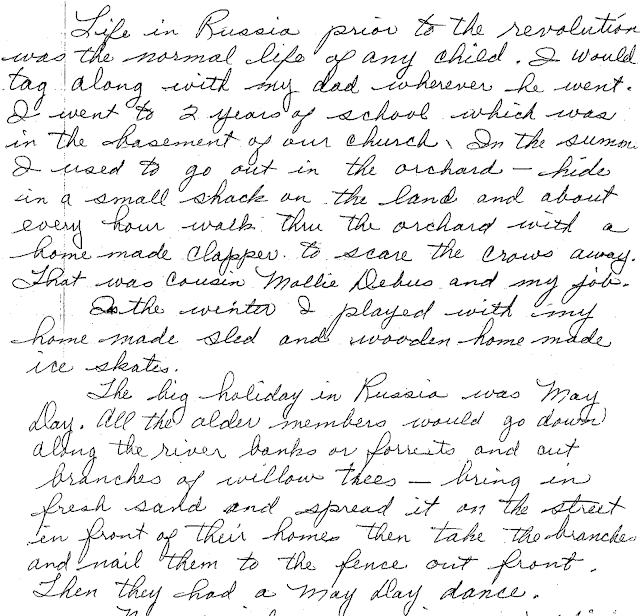 Life in Russia prior to the revolution
was the normal life of any child. I would
tag along with my dad wherever he went.
I went to 2 years of school which was
in the basement of our church. In the summ
I used to go out in the orchard - hide
in a small shack on the land and about
every hour walk thru the orchard with a
home made clapper. to scare the crows away.
That was cousin Mollie Debus and my job.
In the winter I played with my
home made sled and wooden home made
ice skates.
The big holiday in Russia was May
Day. All the alder members would go down
along the river banks or forrests and cut
branches of willow trees - bring in
fresh sand and spread it on the street
in front of their homes then take the branches
and nail them to the fence out front.
Then they had a May Day dance.